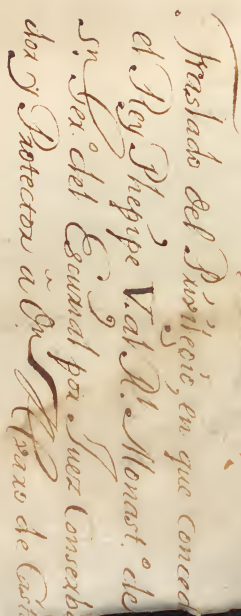 Traslado del Privilegio, en que conced
el Rey Phelipe V. al Rl. Monast.º de
Sn. Lor.º del Escurial por Juez Conserba
dor y Protector a Dn